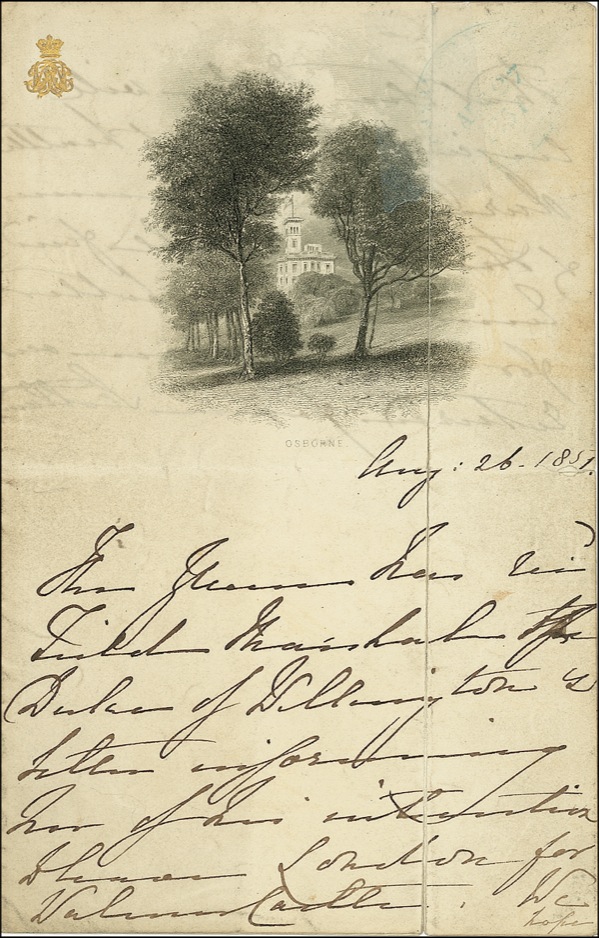 OSBORNE.
Aug: 26. 1851.
The Queen has rec'd
Field Marshal the
Duke of Wellington's
letter informing
her of his intention
to leave London for
Walmer Castle. We
hope